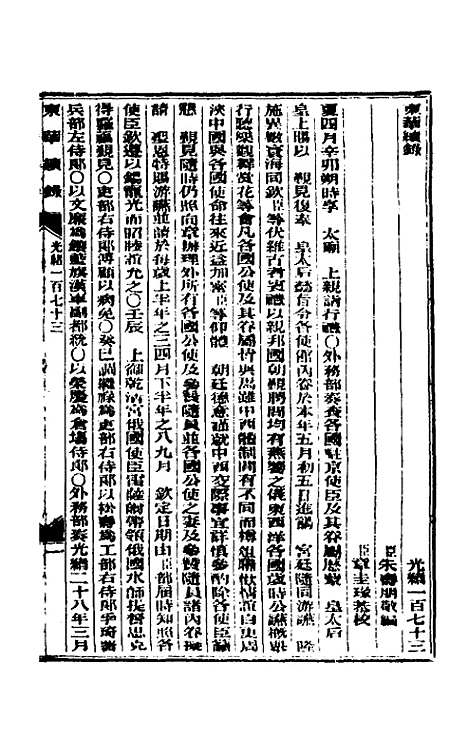 東華續錄
光緒一百七十三
臣朱壽朋敬編
臣章圭瑑恭校
夏四月辛卯朔時享　太廟　上親詣行禮○外務部奏各國駐京使臣及其眷屬歷蒙　皇太后
皇上賜以　觀見復奉　皇太后懿旨令各使館內眷於本年五月初五日進謁　宮廷隨同游讌　隆
施異數寰海同欽臣等伏維古者賓禮以親邦國朝覲聘問均有燕饗之儀東西洋各國歲時公讌
行聽樂觀舞賞花等會凡各國公使及其眷屬皆與焉雖中西體制間有不同而樽俎聯情誼自更周
浹中國與各國使命往來近益加密臣等仰體　朝廷德意謹就中西交際事宜詳慎參酌除各使臣
懇　覲見隨時仍照向章辦理外所有各國公使及參贊隨員並各國公使之妻及參贊隨員諸內眷擬
請　覲恩特賜游讌並請於每歲上半年之三四月下半年之八九月　欽定日期由臣部屆時知照各
使臣欽遵以錫寵光而昭睦誼允之○壬辰　上御乾清宮俄國使臣雷薩爾帶領俄國水師提督思克
得羅福覲見○吏部右侍郎溥顧以病免○癸巳調繼祿為吏部右侍郎以松壽為工部右侍郎乎琦為
兵部左侍郎○以文廉為鑲藍旗漢軍副都統○以榮慶為倉場侍郎○外務部奏光緒二十八年三月
東華續錄
光緒一百七十三
一